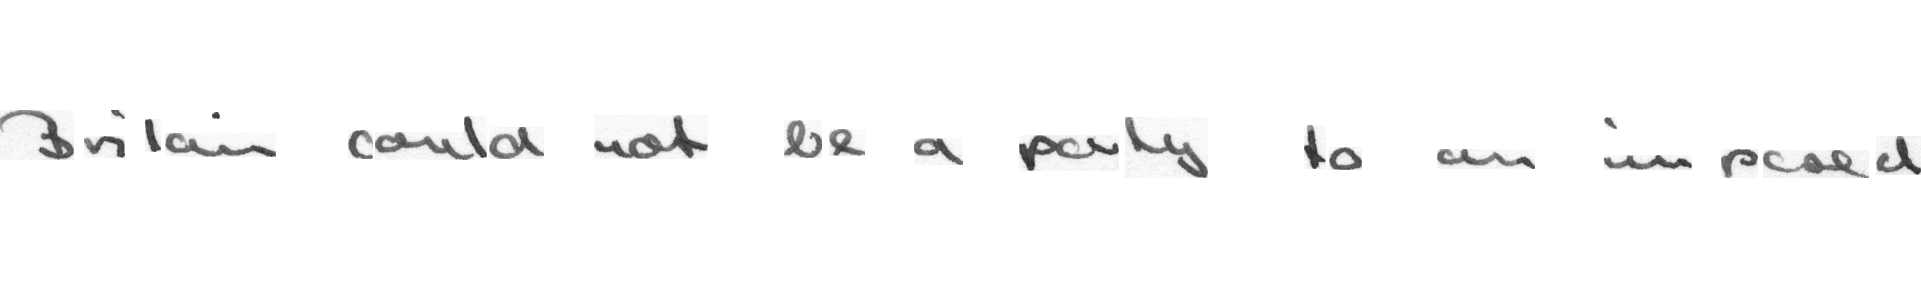 Britain could not be a party to an imposed